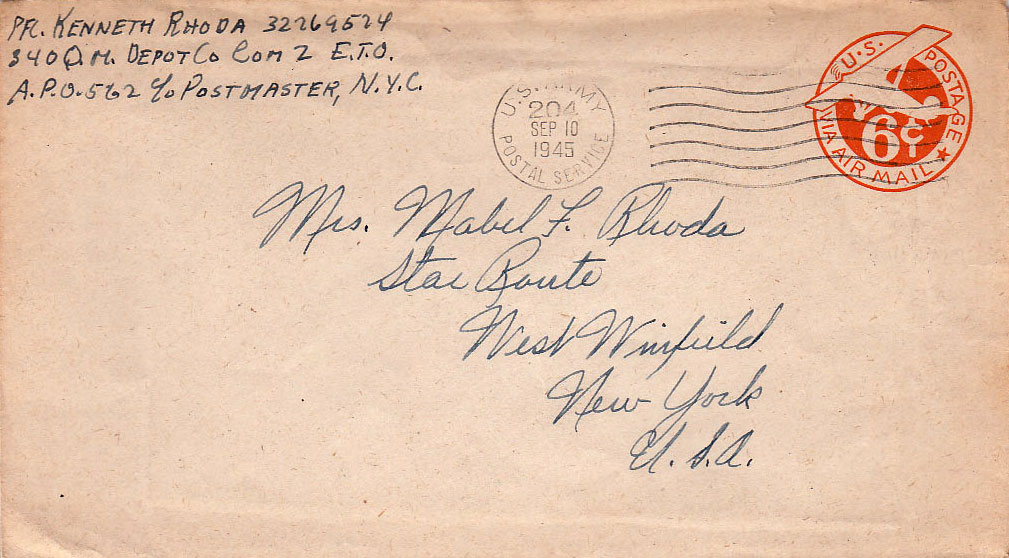 PFC. KENNETH RHODA 32269524
340 Q.M. DEPOT CO COM Z E.T.O.
A.P.O. 562 C/O POSTMASTER, N.Y.C.
U.S. ARMY
204
SEP 10
1945
POSTAL SERVICE
U.S. POSTAGE
6¢
VIA AIR MAIL
Mrs. Mabel F. Rhoda
Star Route
West Winfield
New York
U.S.A.